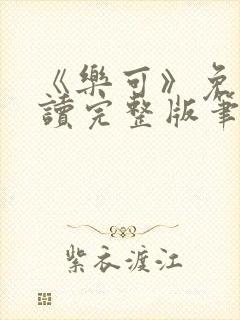 《樂可》免
讀完整版筆
紫衣渡江